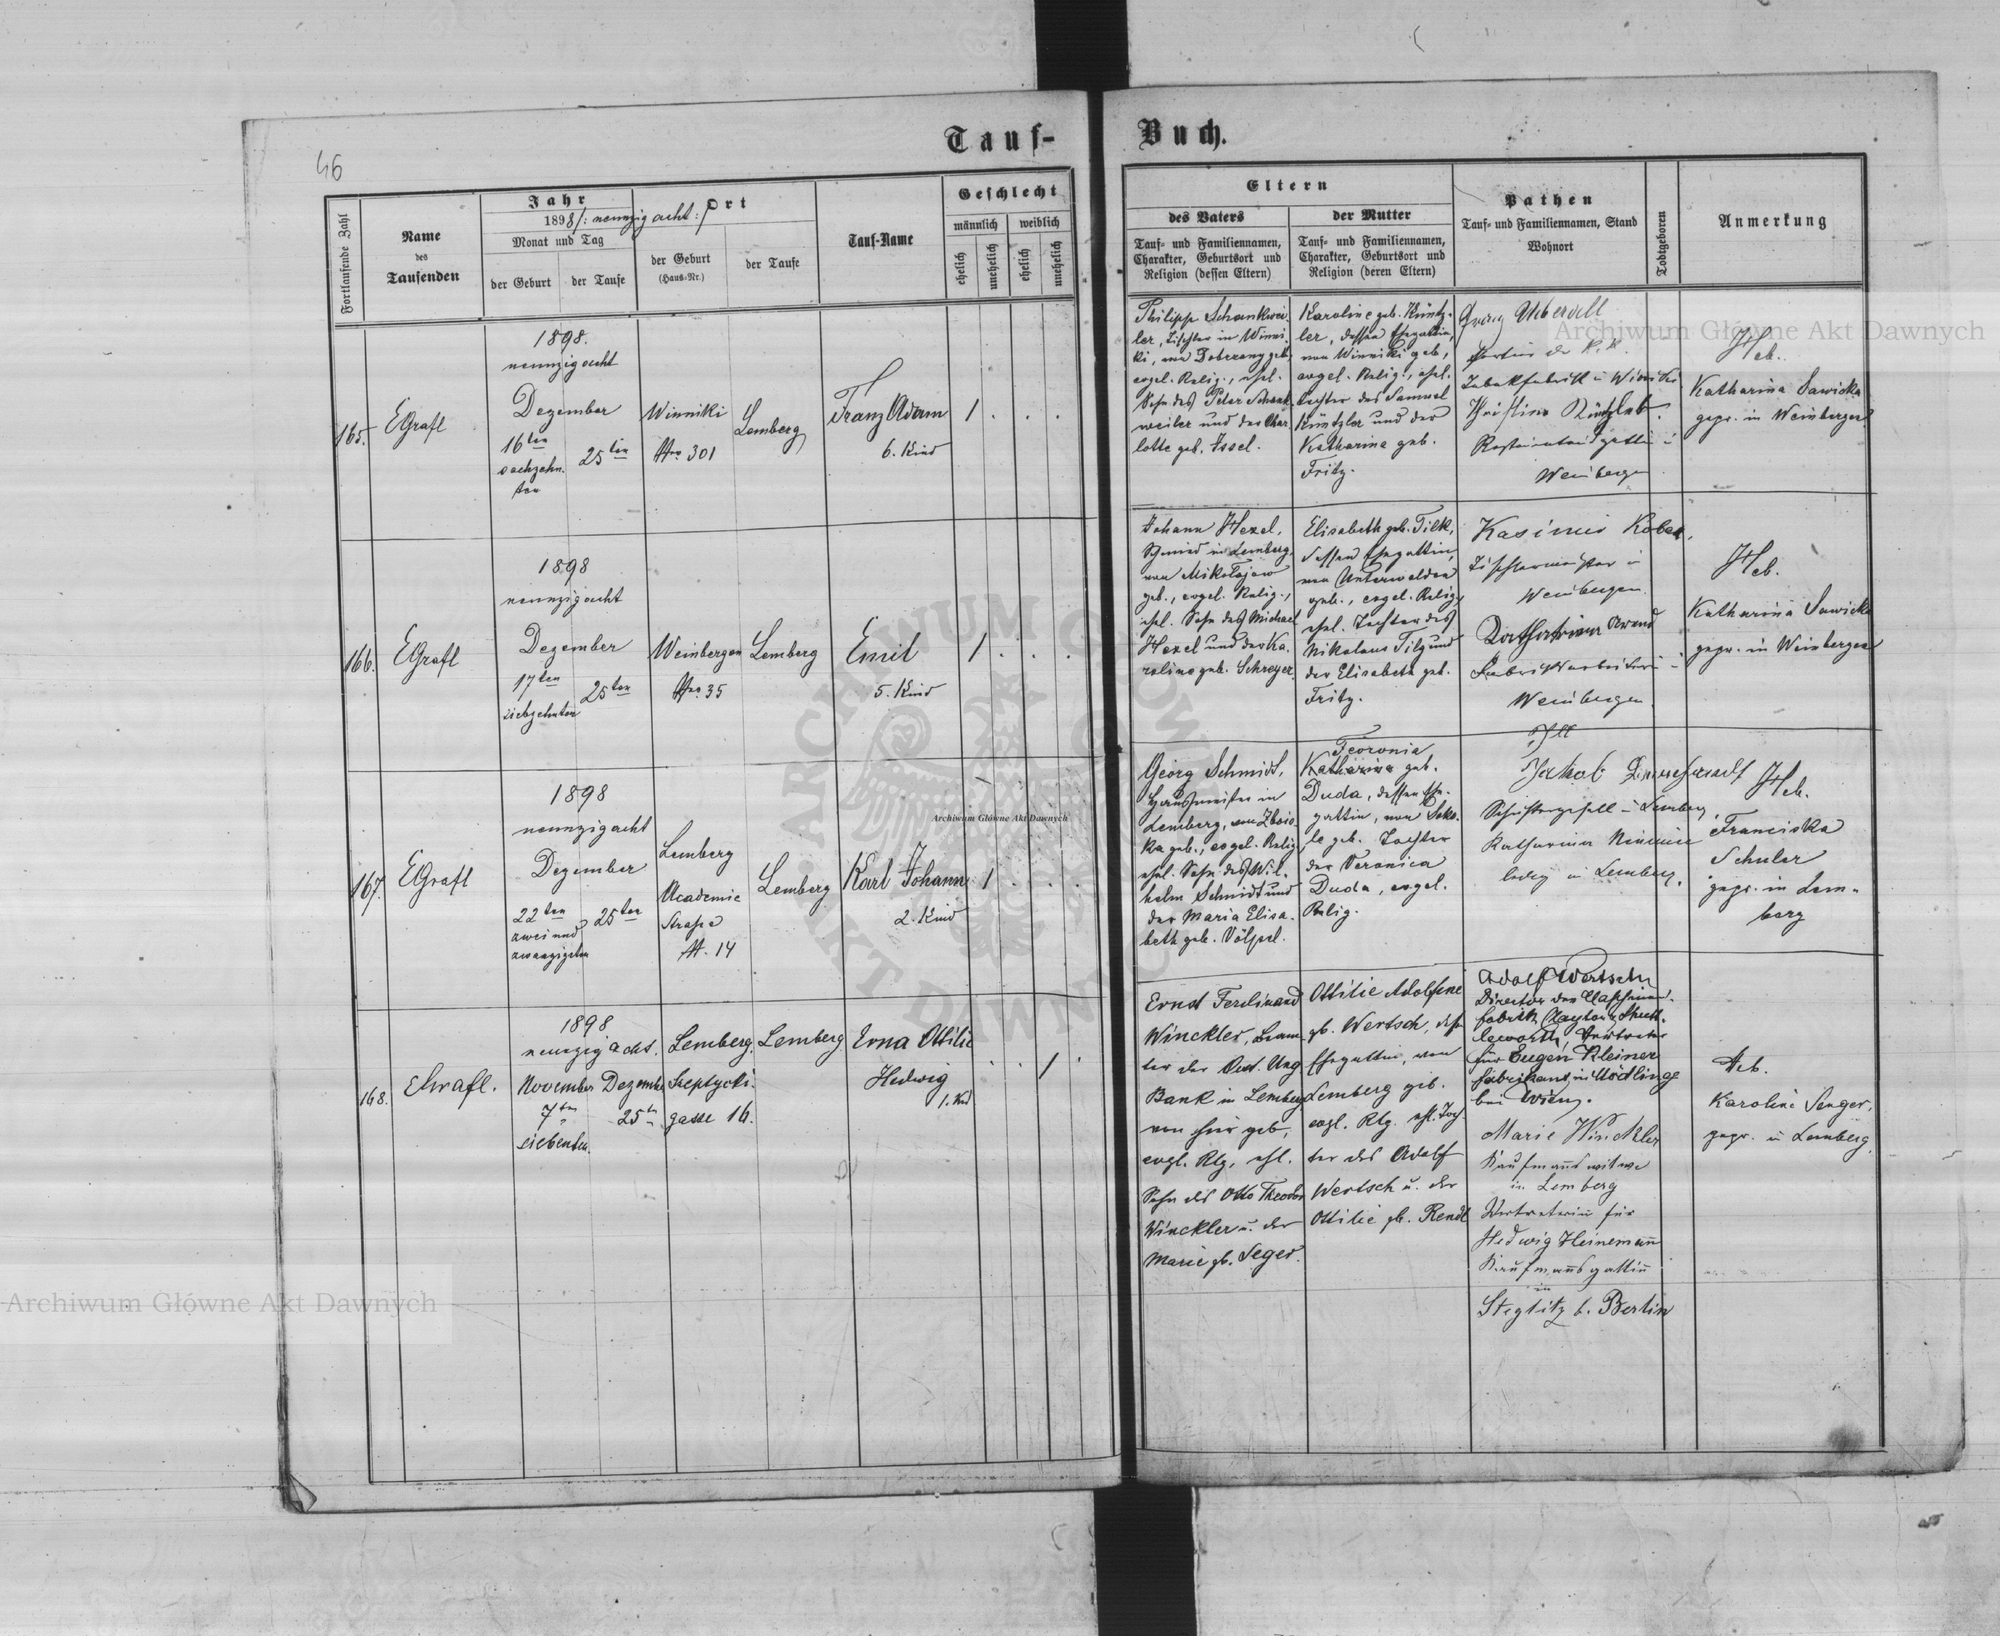 46
Tauf-
Buch.
Fortlaufende Zahl
Name
des
Taufenden
Jahr
1898/: neunzig acht :/
Monat und Tag
der Geburt
der Taufe
Ort
der Geburt
(Haus-Nr.)
der Taufe
Tauf-Name
Geschlecht
männlich
weiblich
ehelich
unehelich
ehelich
unehelich
Eltern
des Vaters
Tauf- und Familiennamen,
Charakter, Geburtsort und
Religion (dessen Eltern)
der Mutter
Tauf- und Familiennamen,
Charakter, Geburtsort und
Religion (deren Eltern)
Pathen
Tauf- und Familiennamen, Stand
Wohnort
Todtgeboren
Anmerkung
165.
EGrafl
1898.
neunzig acht
Dezember
16ten
sechzehn-
ten
25ten
Winniki
Nro 301
Lemberg
Franz Adam
6. Kind
1
Philipp Schankwei-
ler, Tischler in Winni-
ki, von Dobrzany geb.
evgel. Relig., ehel.
Sohn des Peter Schank-
weiler und der Char-
lotte geb. Issel.
Karoline geb. Küntz-
ler, dessen Ehegattin,
von Winniki geb.,
evgel. Relig., ehel.
Tochter des Samuel
Küntzler und der
Katharina geb.
Fritz.
der k.k.
Tabakfabrik in Winniki
Weinbergen
Heb.
Katharina Sawicka
gepr. in Weinbergen
166.
EGrafl
1898
neunzig acht
Dezember
17ten
siebzehnten
25ten
Weinbergen
Nro. 35
Lemberg
Emil
5. Kind
1
Johann Hexel,
Schmied in Lemberg,
von Mikołajow
geb., evgel. Relig.,
ehel. Sohn des Michael
Hexel und der Ka-
roline geb. Schreyer.
Elisabeth geb. Tilk,
dessen Ehegattin,
von Unterwalden
geb., evgel. Relig.,
ehel. Tochter des
Nikolaus Tilg und
der Elisabeth geb.
Fritz.
Kasimir
Tischlermeister in
Weinbergen
Katharina
Fabriksarbeiterin in
Weinbergen.
Heb.
Katharina Sawicka
gepr. in Weinbergen
167.
EGrafl
1898
neunzig acht
Dezember
22ten
zwei und
zwanzigsten
25ten
Lemberg
Academie
Strasse
N. 14
Lemberg
Karl Johann
2. Kind
1
Georg Schmidt,
Hausmeister in
Lemberg, von Zbois-
ka geb., evgel. Relig.
ehel. Sohn des Wil-
helm Schmidt und
der Maria Elisa-
beth geb. Völpel.
Katharina geb.
Duda, dessen Ehe-
gattin, von Soko-
le geb. Tochter
der Veronica
Duda, evgel.
Relig.
Jakob
Schustergesell in Lemberg
Katharina
ledig in Lemberg.
Heb.
Franciska
Schuler
gepr. in Lem-
berg
168.
EGrafl.
1898
neunzig acht.
November
7ten
siebenten.
Dezember
25ten
Lemberg.
Szeptycki-
gasse 16.
Lemberg
Erna Ottilie
Hedwig
1. Kind
1
Ernst Ferdinand
Winckler, Beam-
ter der Oest. Ung.
Bank in Lemberg
von hier geb,
evgl. Rlg, ehl.
Sohn des Otto Theodor
Winckler u. der
Marie gb. Seger.
Ottilie Adolfine
gb. Wertsch, dess.
Ehegattin, von
Lemberg geb.
evgl. Rlg. ehl. Toch-
ter des Adolf
Wertsch u. der
Ottilie gb. Rendl
Adolf Wertsch
Director der Maschinen-
fabrik Clayton & Shutt-
leworth, Vertreter
für Eugen Kleiner
Fabrikant in Mödling
bei Wien.
Marie Winckler
Kaufmannswitwe
in Lemberg
Vertreterin für
Hedwig Heinemann
Kaufmannsgattin
in
Steglitz b. Berlin
Heb.
Karoline Senger,
gepr. in Lemberg.
Archiwum Główne Akt Dawnych
Archiwum Główne Akt Dawnych
Archiwum Główne Akt Dawnych
ARCHIWUM GŁÓWNE AKT DAWNYCH